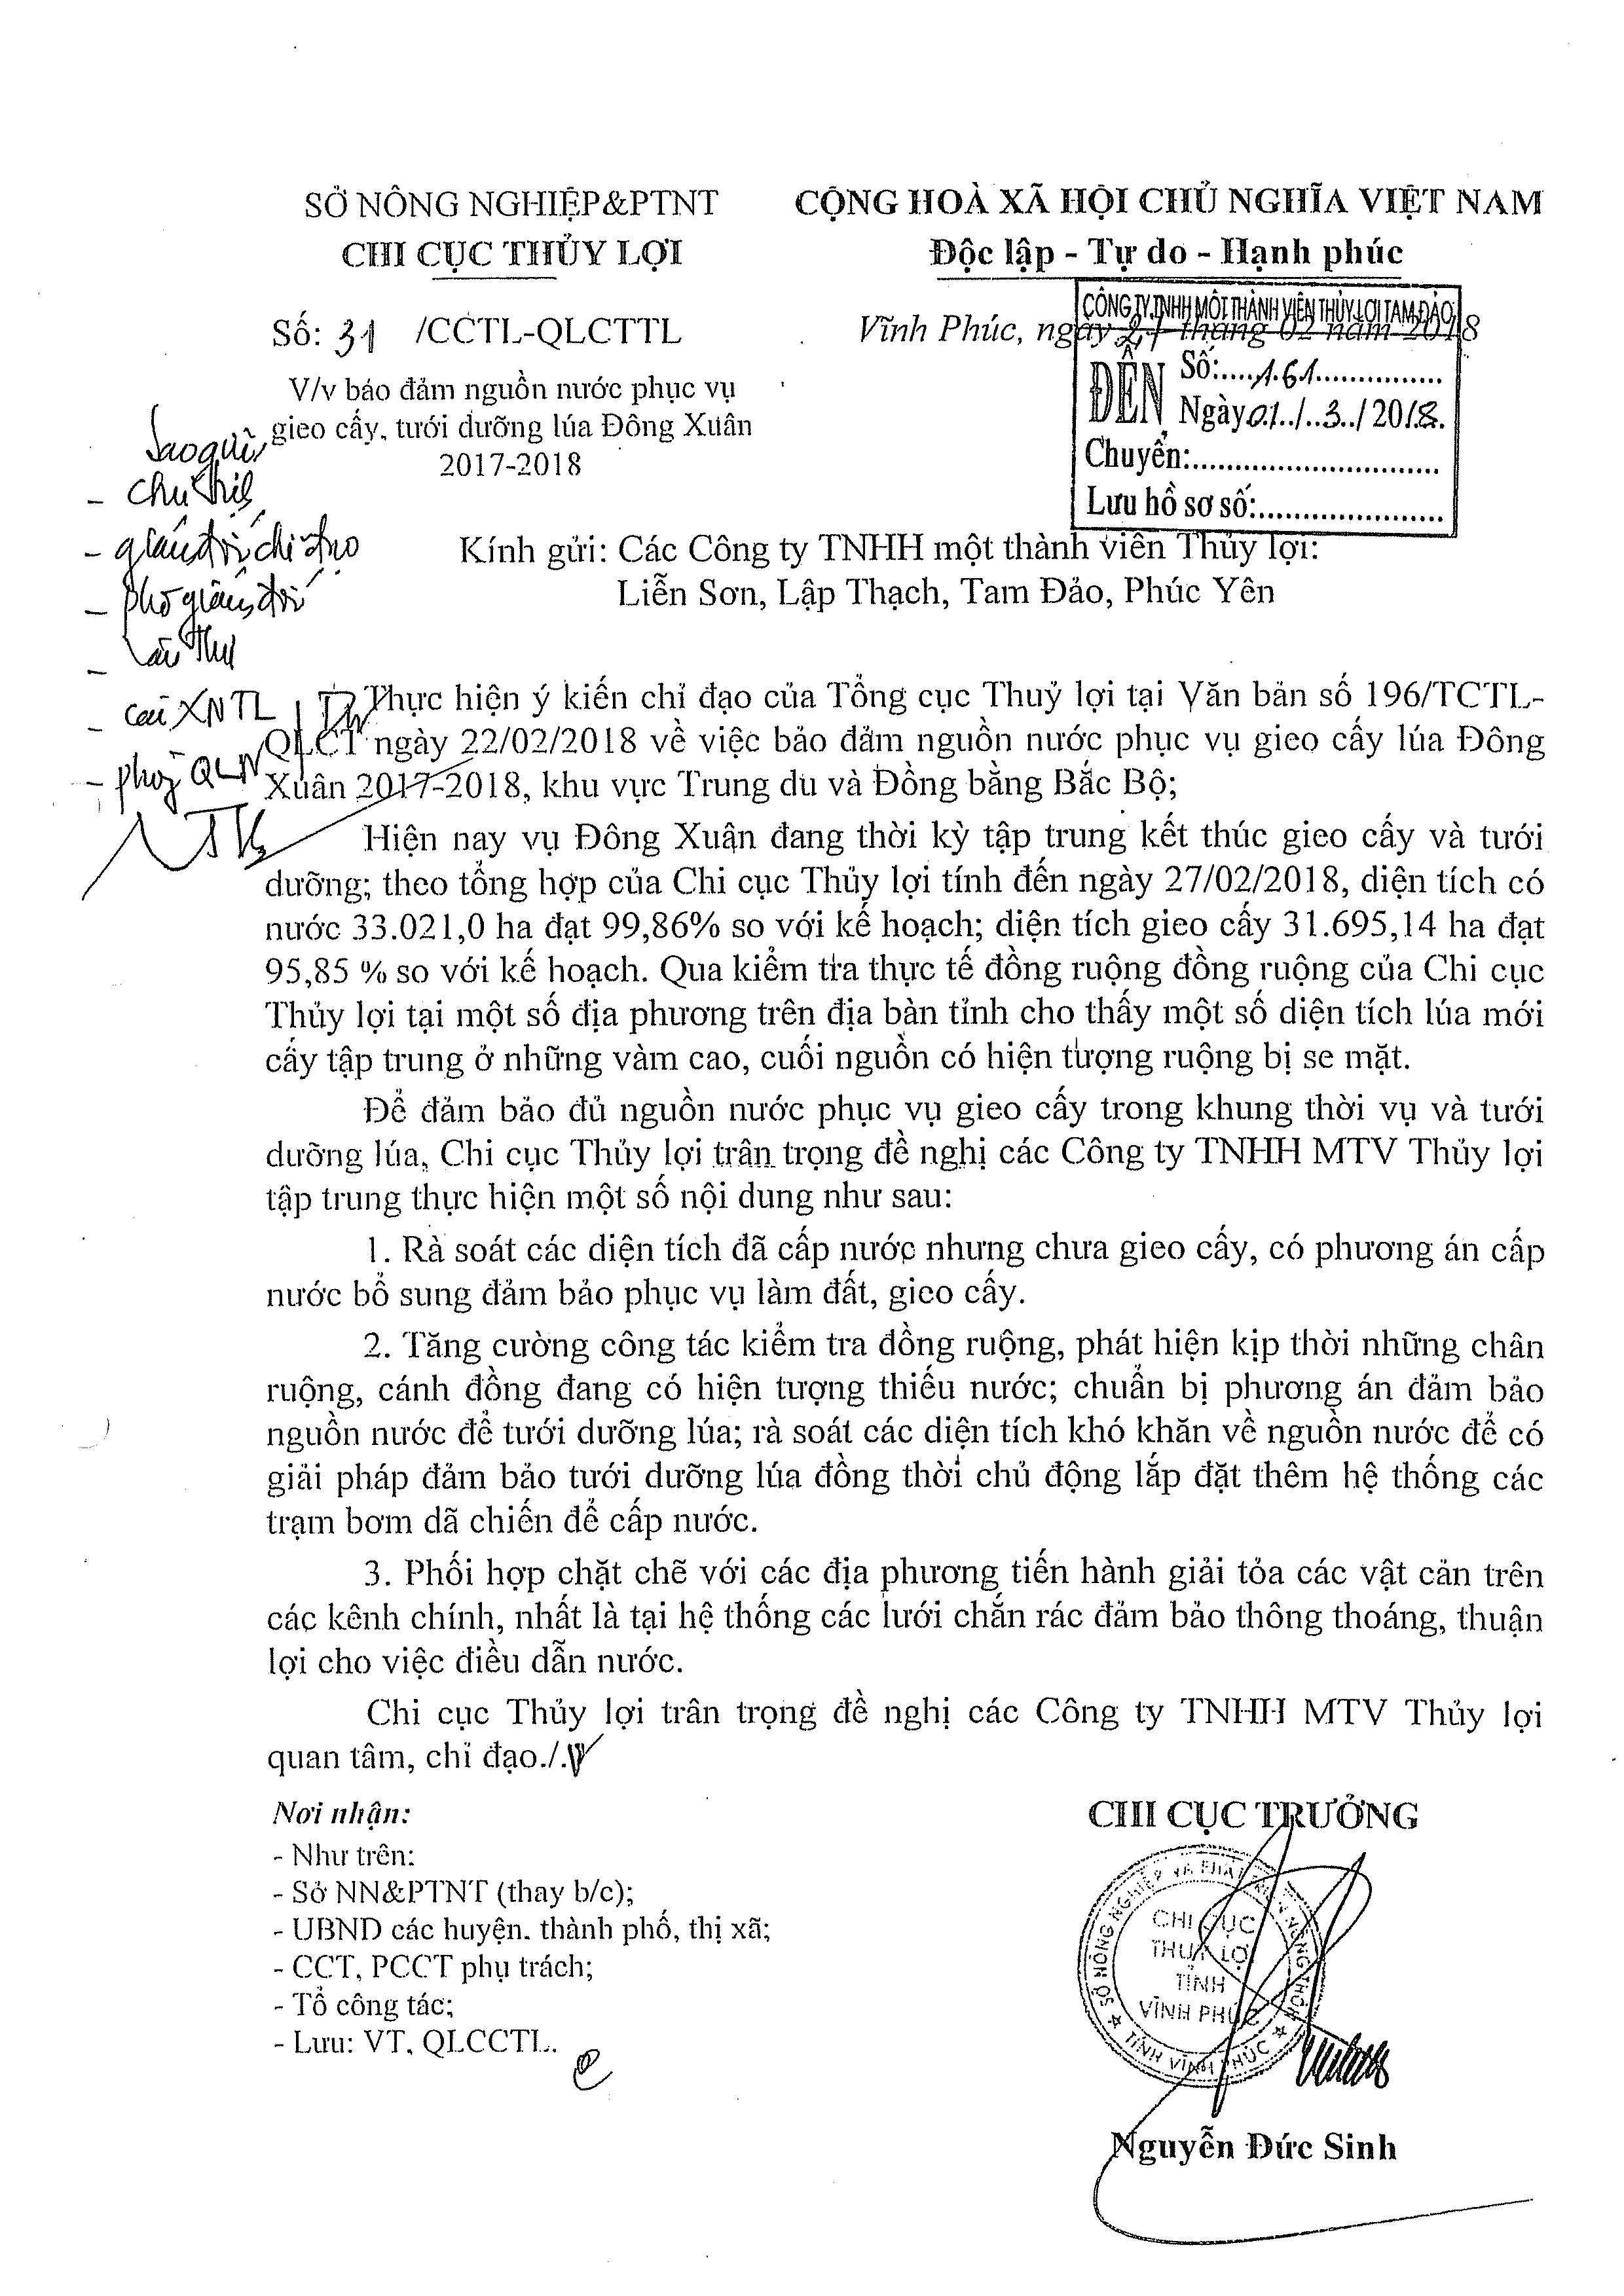 SỞ NÔNG NGHIỆP&PTNT
CHI CỤC THỦY LỢI
CỘNG HOÀ XÃ HỘI CHỦ NGHĨA VIỆT NAM
Độc lập - Tự do - Hạnh phúc
Số: 31 /CCTL-QLCTTL
Vĩnh Phúc, ngày 27 tháng 02 năm 2018
V/v bảo đảm nguồn nước phục vụ
gieo cấy, tưới dưỡng lúa Đông Xuân
2017-2018
CÔNG TY TNHH MỘT THÀNH VIÊN THỦY LỢI TAM ĐẢO
ĐẾN
Số:....161...............
Ngày 01../..3../2018.
Chuyển:............................
Lưu hồ sơ số:.....................
Sao gửi
- Chủ tịch
- giám đốc chỉ đạo
- phó giám đốc
-
- các XNTL
- phòng QLN
Kính gửi: Các Công ty TNHH một thành viên Thủy lợi:
Liễn Sơn, Lập Thạch, Tam Đảo, Phúc Yên
Thực hiện ý kiến chỉ đạo của Tổng cục Thuỷ lợi tại Văn bản số 196/TCTL-
QLCT ngày 22/02/2018 về việc bảo đảm nguồn nước phục vụ gieo cấy lúa Đông
Xuân 2017-2018, khu vực Trung du và Đồng bằng Bắc Bộ;
Hiện nay vụ Đông Xuân đang thời kỳ tập trung kết thúc gieo cấy và tưới
dưỡng; theo tổng hợp của Chi cục Thủy lợi tính đến ngày 27/02/2018, diện tích có
nước 33.021,0 ha đạt 99,86% so với kế hoạch; diện tích gieo cấy 31.695,14 ha đạt
95,85 % so với kế hoạch. Qua kiểm tra thực tế đồng ruộng đồng ruộng của Chi cục
Thủy lợi tại một số địa phương trên địa bàn tỉnh cho thấy một số diện tích lúa mới
cấy tập trung ở những vàm cao, cuối nguồn có hiện tượng ruộng bị se mặt.
Để đảm bảo đủ nguồn nước phục vụ gieo cấy trong khung thời vụ và tưới
dưỡng lúa, Chi cục Thủy lợi trân trọng đề nghị các Công ty TNHH MTV Thủy lợi
tập trung thực hiện một số nội dung như sau:
1. Rà soát các diện tích đã cấp nước nhưng chưa gieo cấy, có phương án cấp
nước bổ sung đảm bảo phục vụ làm đất, gieo cấy.
2. Tăng cường công tác kiểm tra đồng ruộng, phát hiện kịp thời những chân
ruộng, cánh đồng đang có hiện tượng thiếu nước; chuẩn bị phương án đảm bảo
nguồn nước để tưới dưỡng lúa; rà soát các diện tích khó khăn về nguồn nước để có
giải pháp đảm bảo tưới dưỡng lúa đồng thời chủ động lắp đặt thêm hệ thống các
trạm bơm dã chiến để cấp nước.
3. Phối hợp chặt chẽ với các địa phương tiến hành giải tỏa các vật cản trên
các kênh chính, nhất là tại hệ thống các lưới chắn rác đảm bảo thông thoáng, thuận
lợi cho việc điều dẫn nước.
Chi cục Thủy lợi trân trọng đề nghị các Công ty TNHH MTV Thủy lợi
quan tâm, chỉ đạo./.
Nơi nhận:
- Như trên:
- Sở NN&PTNT (thay b/c);
- UBND các huyện, thành phố, thị xã;
- CCT, PCCT phụ trách;
- Tổ công tác;
- Lưu: VT, QLCCTL.
CHI CỤC TRƯỞNG
SỞ NÔNG NGHIỆP VÀ PHÁT TRIỂN NÔNG THÔN
CHI CỤC
THUỶ LỢI
TỈNH
VĨNH PHÚC
TỈNH VĨNH PHÚC
Nguyễn Đức Sinh